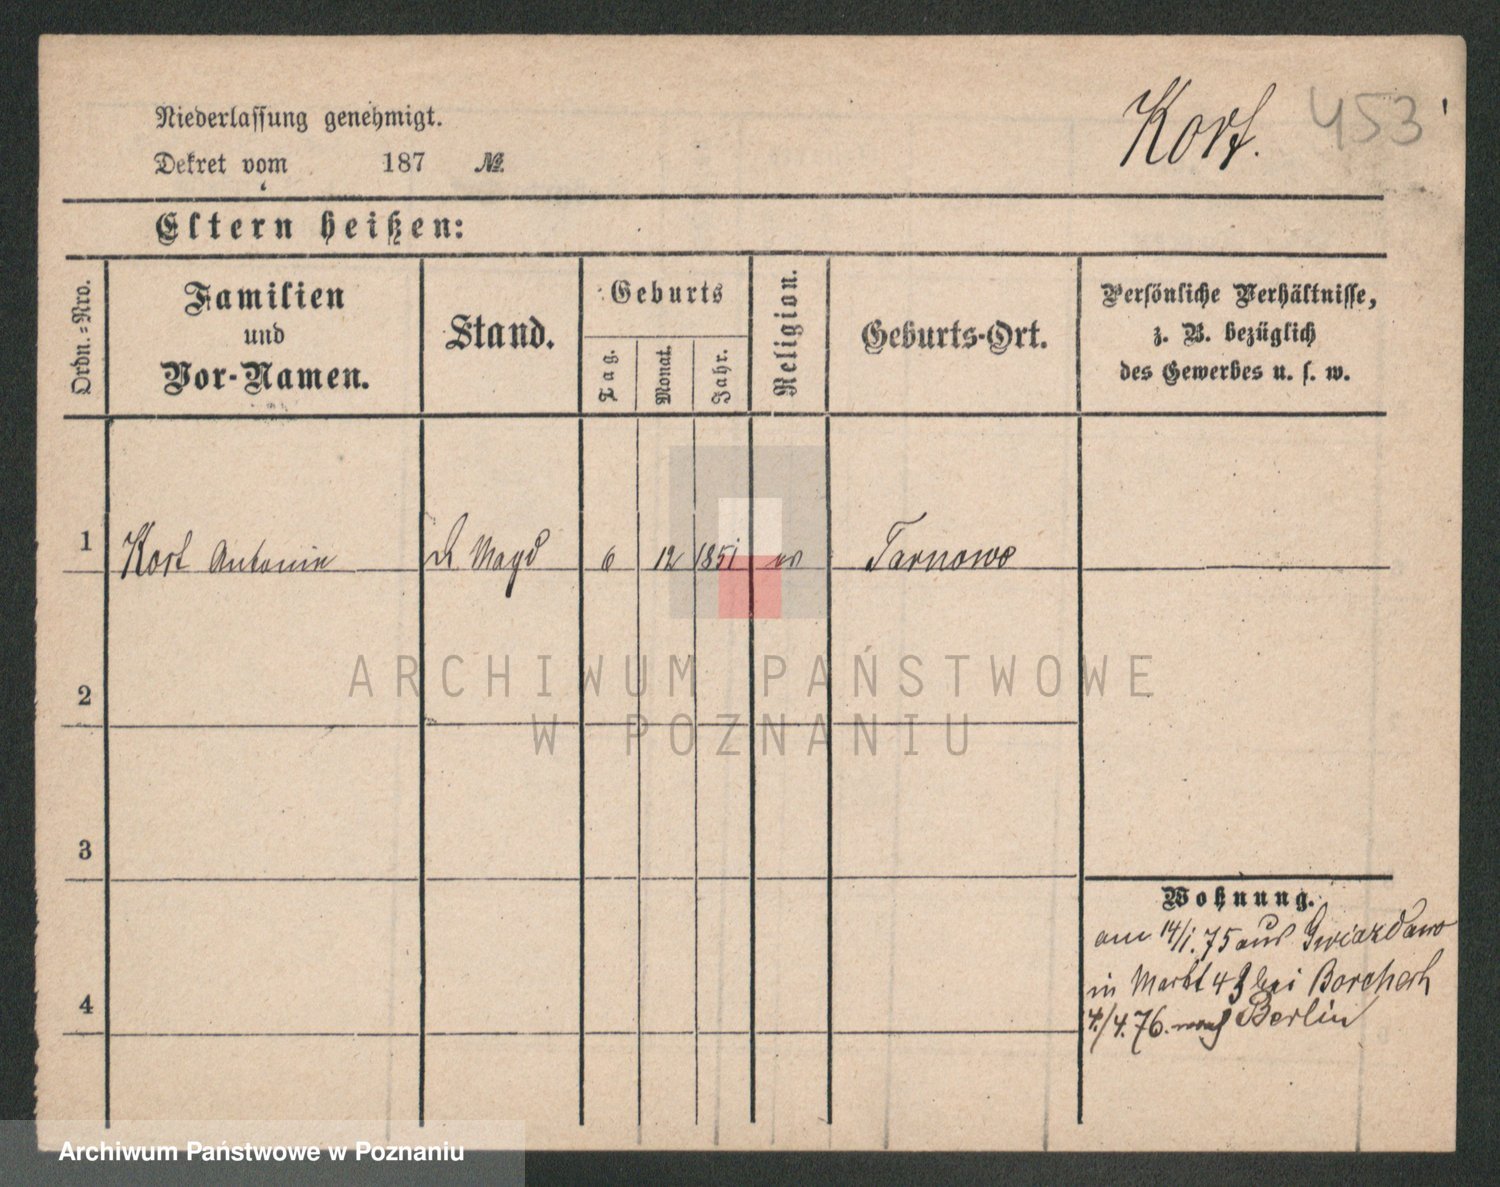 Niederlassung genehmigt.
Dekret vom 187 №
Kort. 453
Eltern heißen:
Ordn.-Nro.
Familien
und
Vor-Namen.
Stand.
Geburts
Tag.
Monat.
Jahr.
Religion.
Geburts-Ort.
Persönliche Verhältnisse,
z. B. bezüglich
des Gewerbes u. s. w.
1 Kort Antonie Magd 6 12 1851 Tarnowo
2
3
4
ARCHIWUM PAŃSTWOWE
W POZNANIU
Wohnung.
am 14/1. 75 aus Gwiazdowo
in Markt 43 bei
4./4. 76. nach Berlin
Archiwum Państwowe w Poznaniu